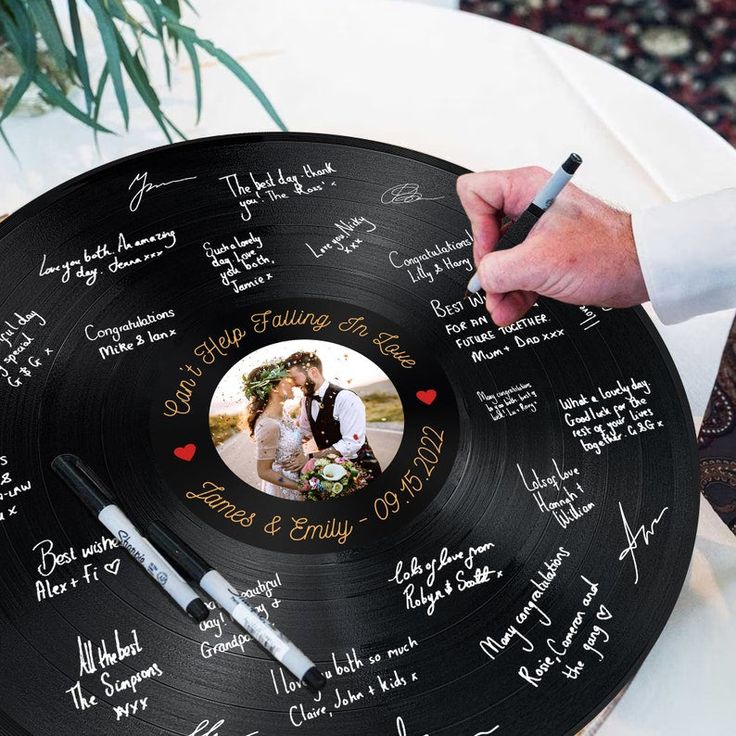 The best day. thank
you! The Ross' x
Love you both. An amazing
day. Jenna xxx
Such a lovely
day, love
you both.
Jamie x
Love you, Nicky
xx
Congratulations
Lilly & Harry
Best
wishes
for an
future together
Mum + Dad xxx
day
special
G & G x
Congratulations
Mike & Ian x
Can't Help Falling In Love
James & Emily - 09.15.2022
Many congratulations
What a lovely day.
Good luck for the
rest of your lives
together. C & G x
Lots of love
Hannah +
William
Best wishes
Alex + Fi ♡
Sharpie
beautiful
day!
&
Grandpa
Lots of love from
Robyn & Scott x
Many congratulations
Rosie, Cameron and
the gang ♡
All the best
The Simpsons
xxxx
I love you both so much
Claire, John + kids x